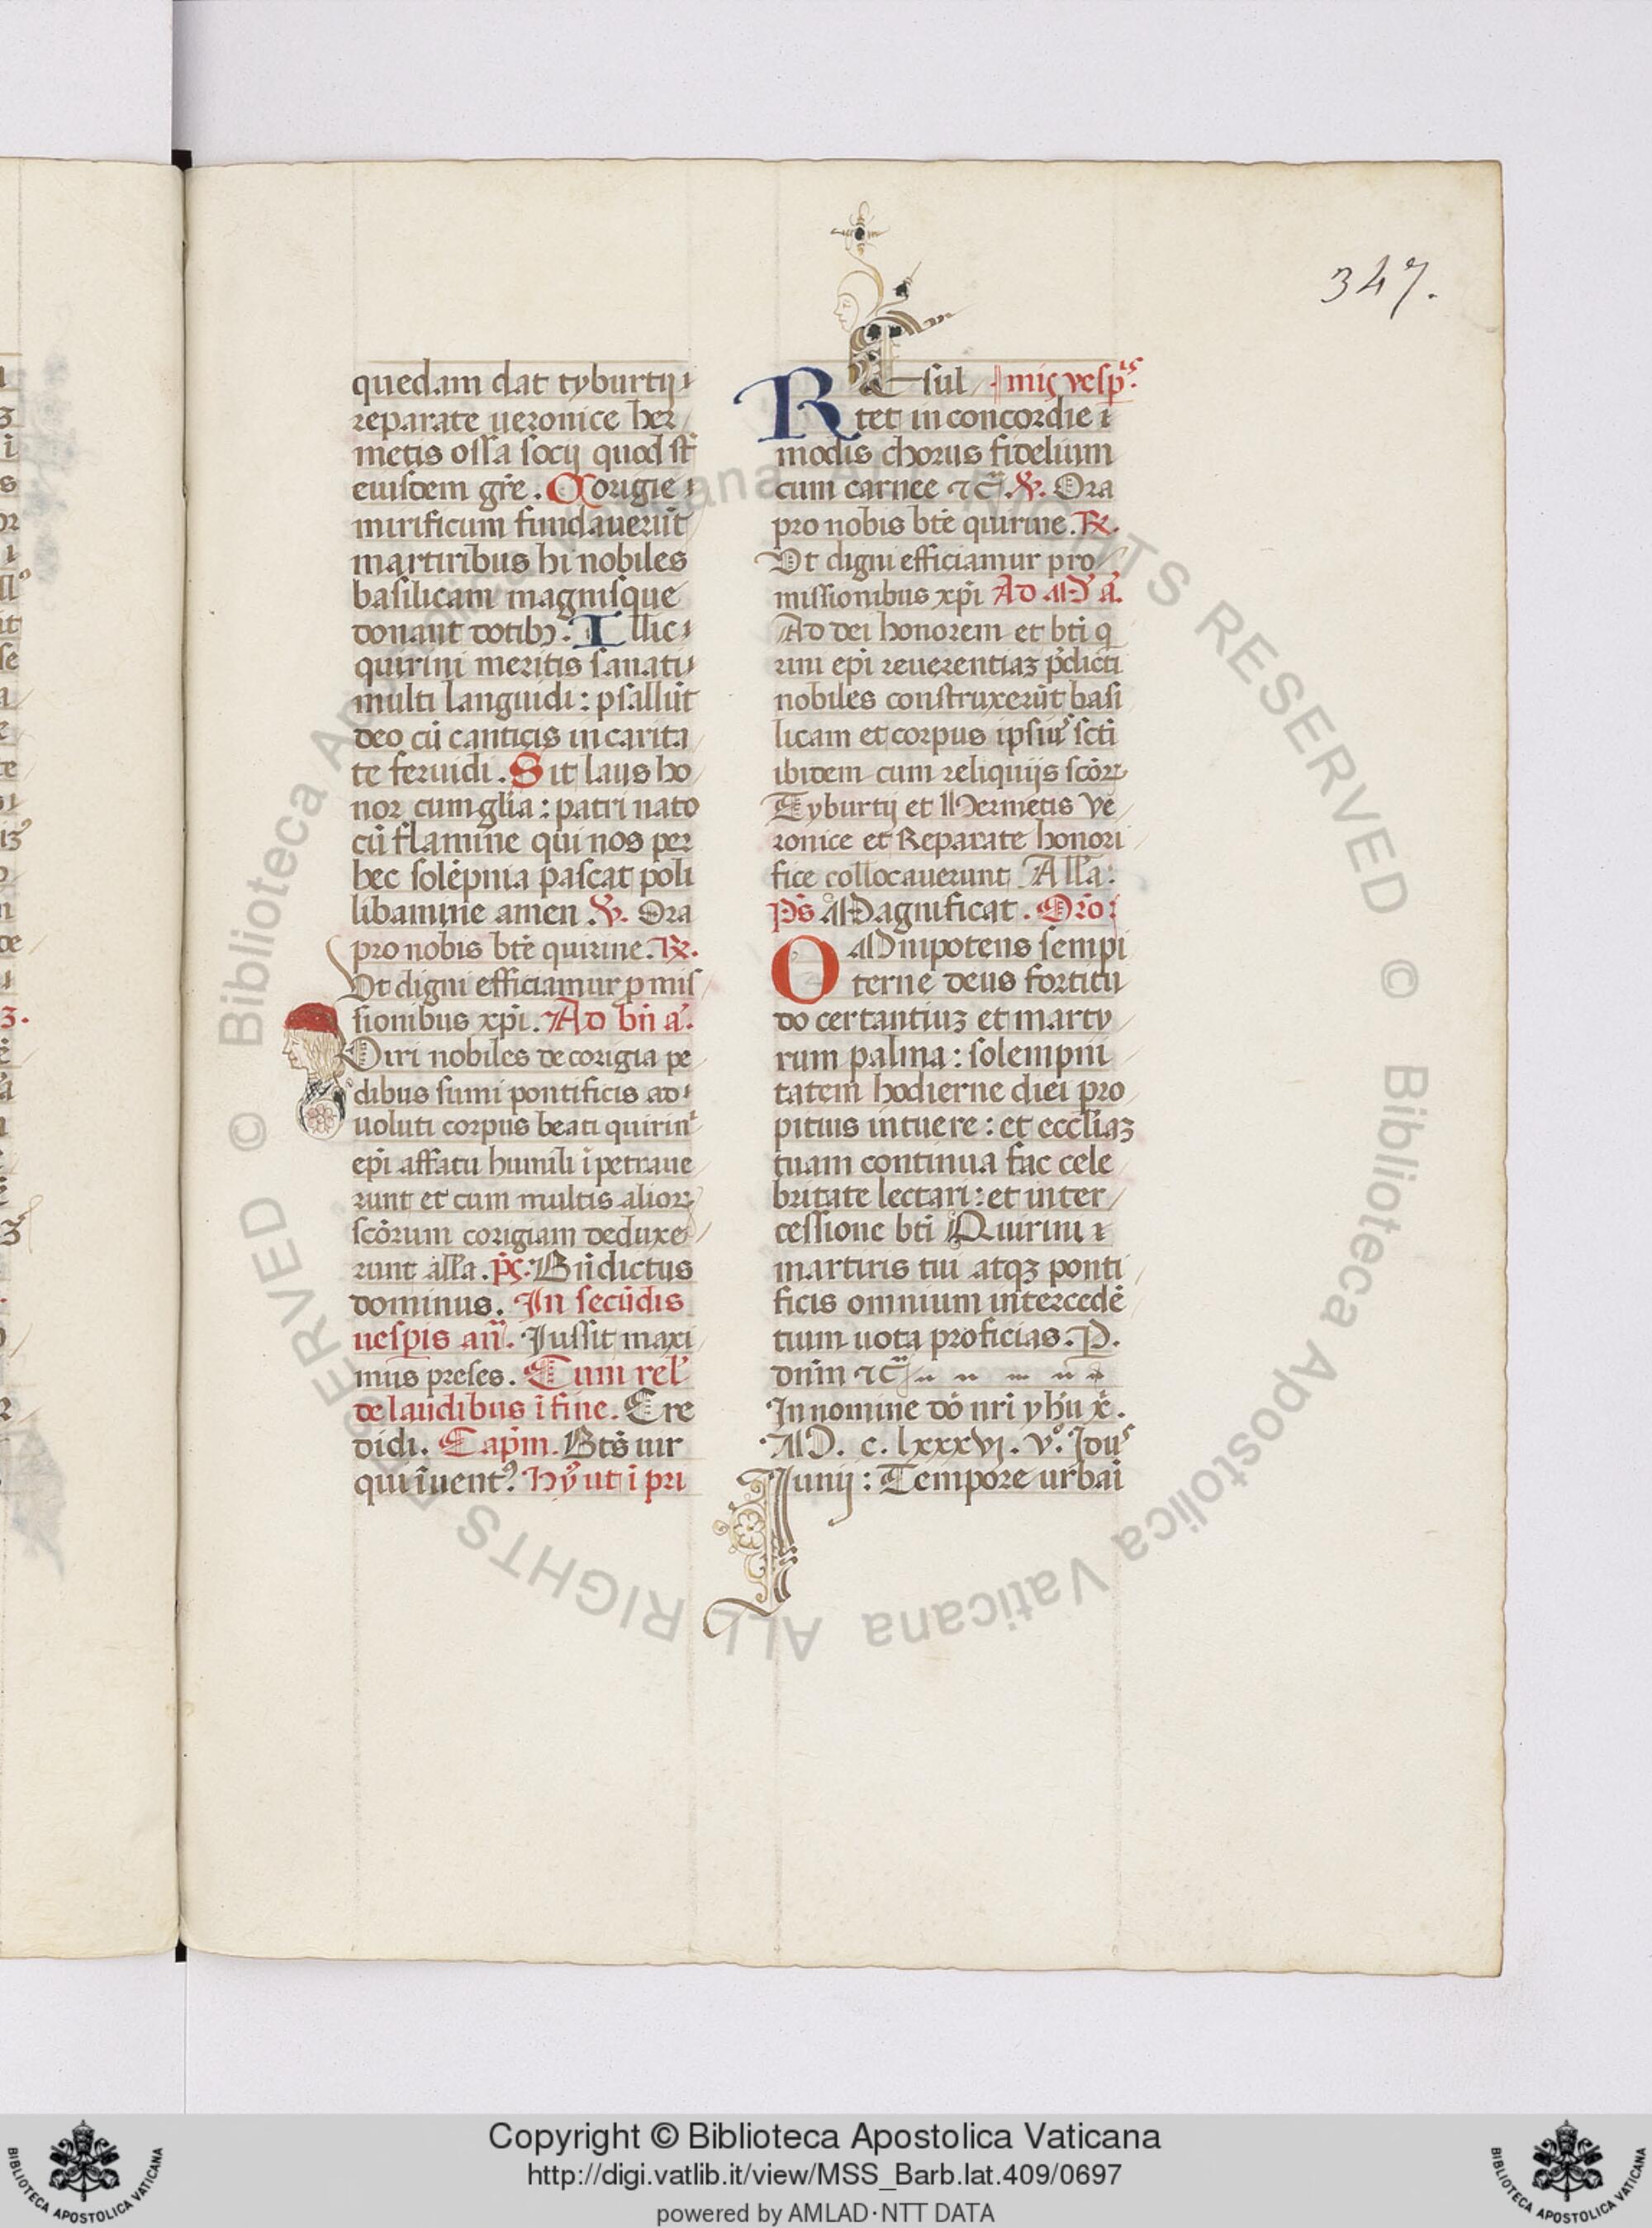 347.
quedam dat tyburtij
reparate ueronice her
metis ossa socij quod st̄
eiusdem gr̄e. Corigie
mirificum fundauerūt
martiribus hi nobiles
basilicam magnisque
donant dotibꝫ. Illic
quirini meritis sanati
multi languidi: psallūt
deo cū canticis in carita
te feruidi. Sit laus ho
nor cum gl̄ia: patri nato
cū flamine qui nos per
hec solēpnia pascat poli
libamine amen. ℣. Ora
pro nobis btē quirine. ℟.
Vt digni efficiamur ꝓmis
sionibus xp̄i. Ad bn̄ a.
Viri nobiles de corigia pe
dibus sumi pontificis ad
uoluti corpus beati quirini
ep̄i affatu humili īpetraue
runt et cum multis alioꝝ
scōrum corigiam deduxe
runt all̄a. p̄s. Bn̄dictus
dominus. In secūdis
uesp̱is an̄. Jussit maxi
mus preses. Cum rel̄
de laudibus ī fine. Cre
didi. Capm̄. Bt̄s uir
qui īuentꝰ. Hȳ ut ī pri
mis vesp̱is.
REsul
tet in concordie
modis chorus fidelium
cum carnee ⁊c̄. ℣. Ora
pro nobis btē quirine. ℟.
Vt digni efficiamur pro
missionibus xp̄i Ad M a.
Ad dei honorem et bt̄i q
rini ep̄i reuerentiaꝫ p̄dicti
nobiles construxerūt basi
licam et corpus ipsius sc̄ti
ibidem cum reliquijs scōꝝ
Tyburtij et Hermetis Ve
ronice et Reparate honori
fice collocauerunt All̄a:
Ps̄ Magnificat. Or̄o:
OMnipotens sempi
terne deus fortitu
do certantiuꝫ et marty
rum palma: solempni
tatem hodierne diei pro
pitius intuere: et eccl̄iaꝫ
tuam continua fac cele
britate lectari: et inter
cessione bt̄i Quirini
martiris tui atqꝫ ponti
ficis omnium intercedē
tium uota proficias. P.
dnm̄ ⁊c̄
In nomine dō nr̄i yhū x̄.
M. c. lxxxvj. v°. Idus
Iunij: Tempore urbai
Copyright © Biblioteca Apostolica Vaticana
http://digi.vatlib.it/view/MSS_Barb.lat.409/0697
powered by AMLAD·NTT DATA
BIBLIOTECA APOSTOLICA VATICANA
BIBLIOTECA APOSTOLICA VATICANA
© Biblioteca Apostolica Vaticana ALL RIGHTS RESERVED © Biblioteca Apostolica Vaticana ALL RIGHTS RESERVED